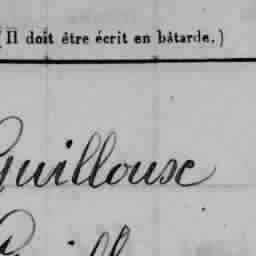 (Il doit être écrit en bâtarde.)
Guillouse